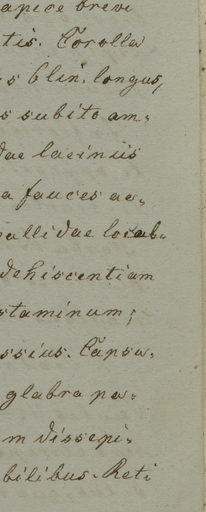 apice brevi
tis. Corolla
s 6 lin. longus,
s subito am-
dae laciniis
a fauces ac-
pallidae lo
dehiscentiam
staminum;
ssius. Capsu-
glabra pa-
m dissepi-
bilibus. Reti